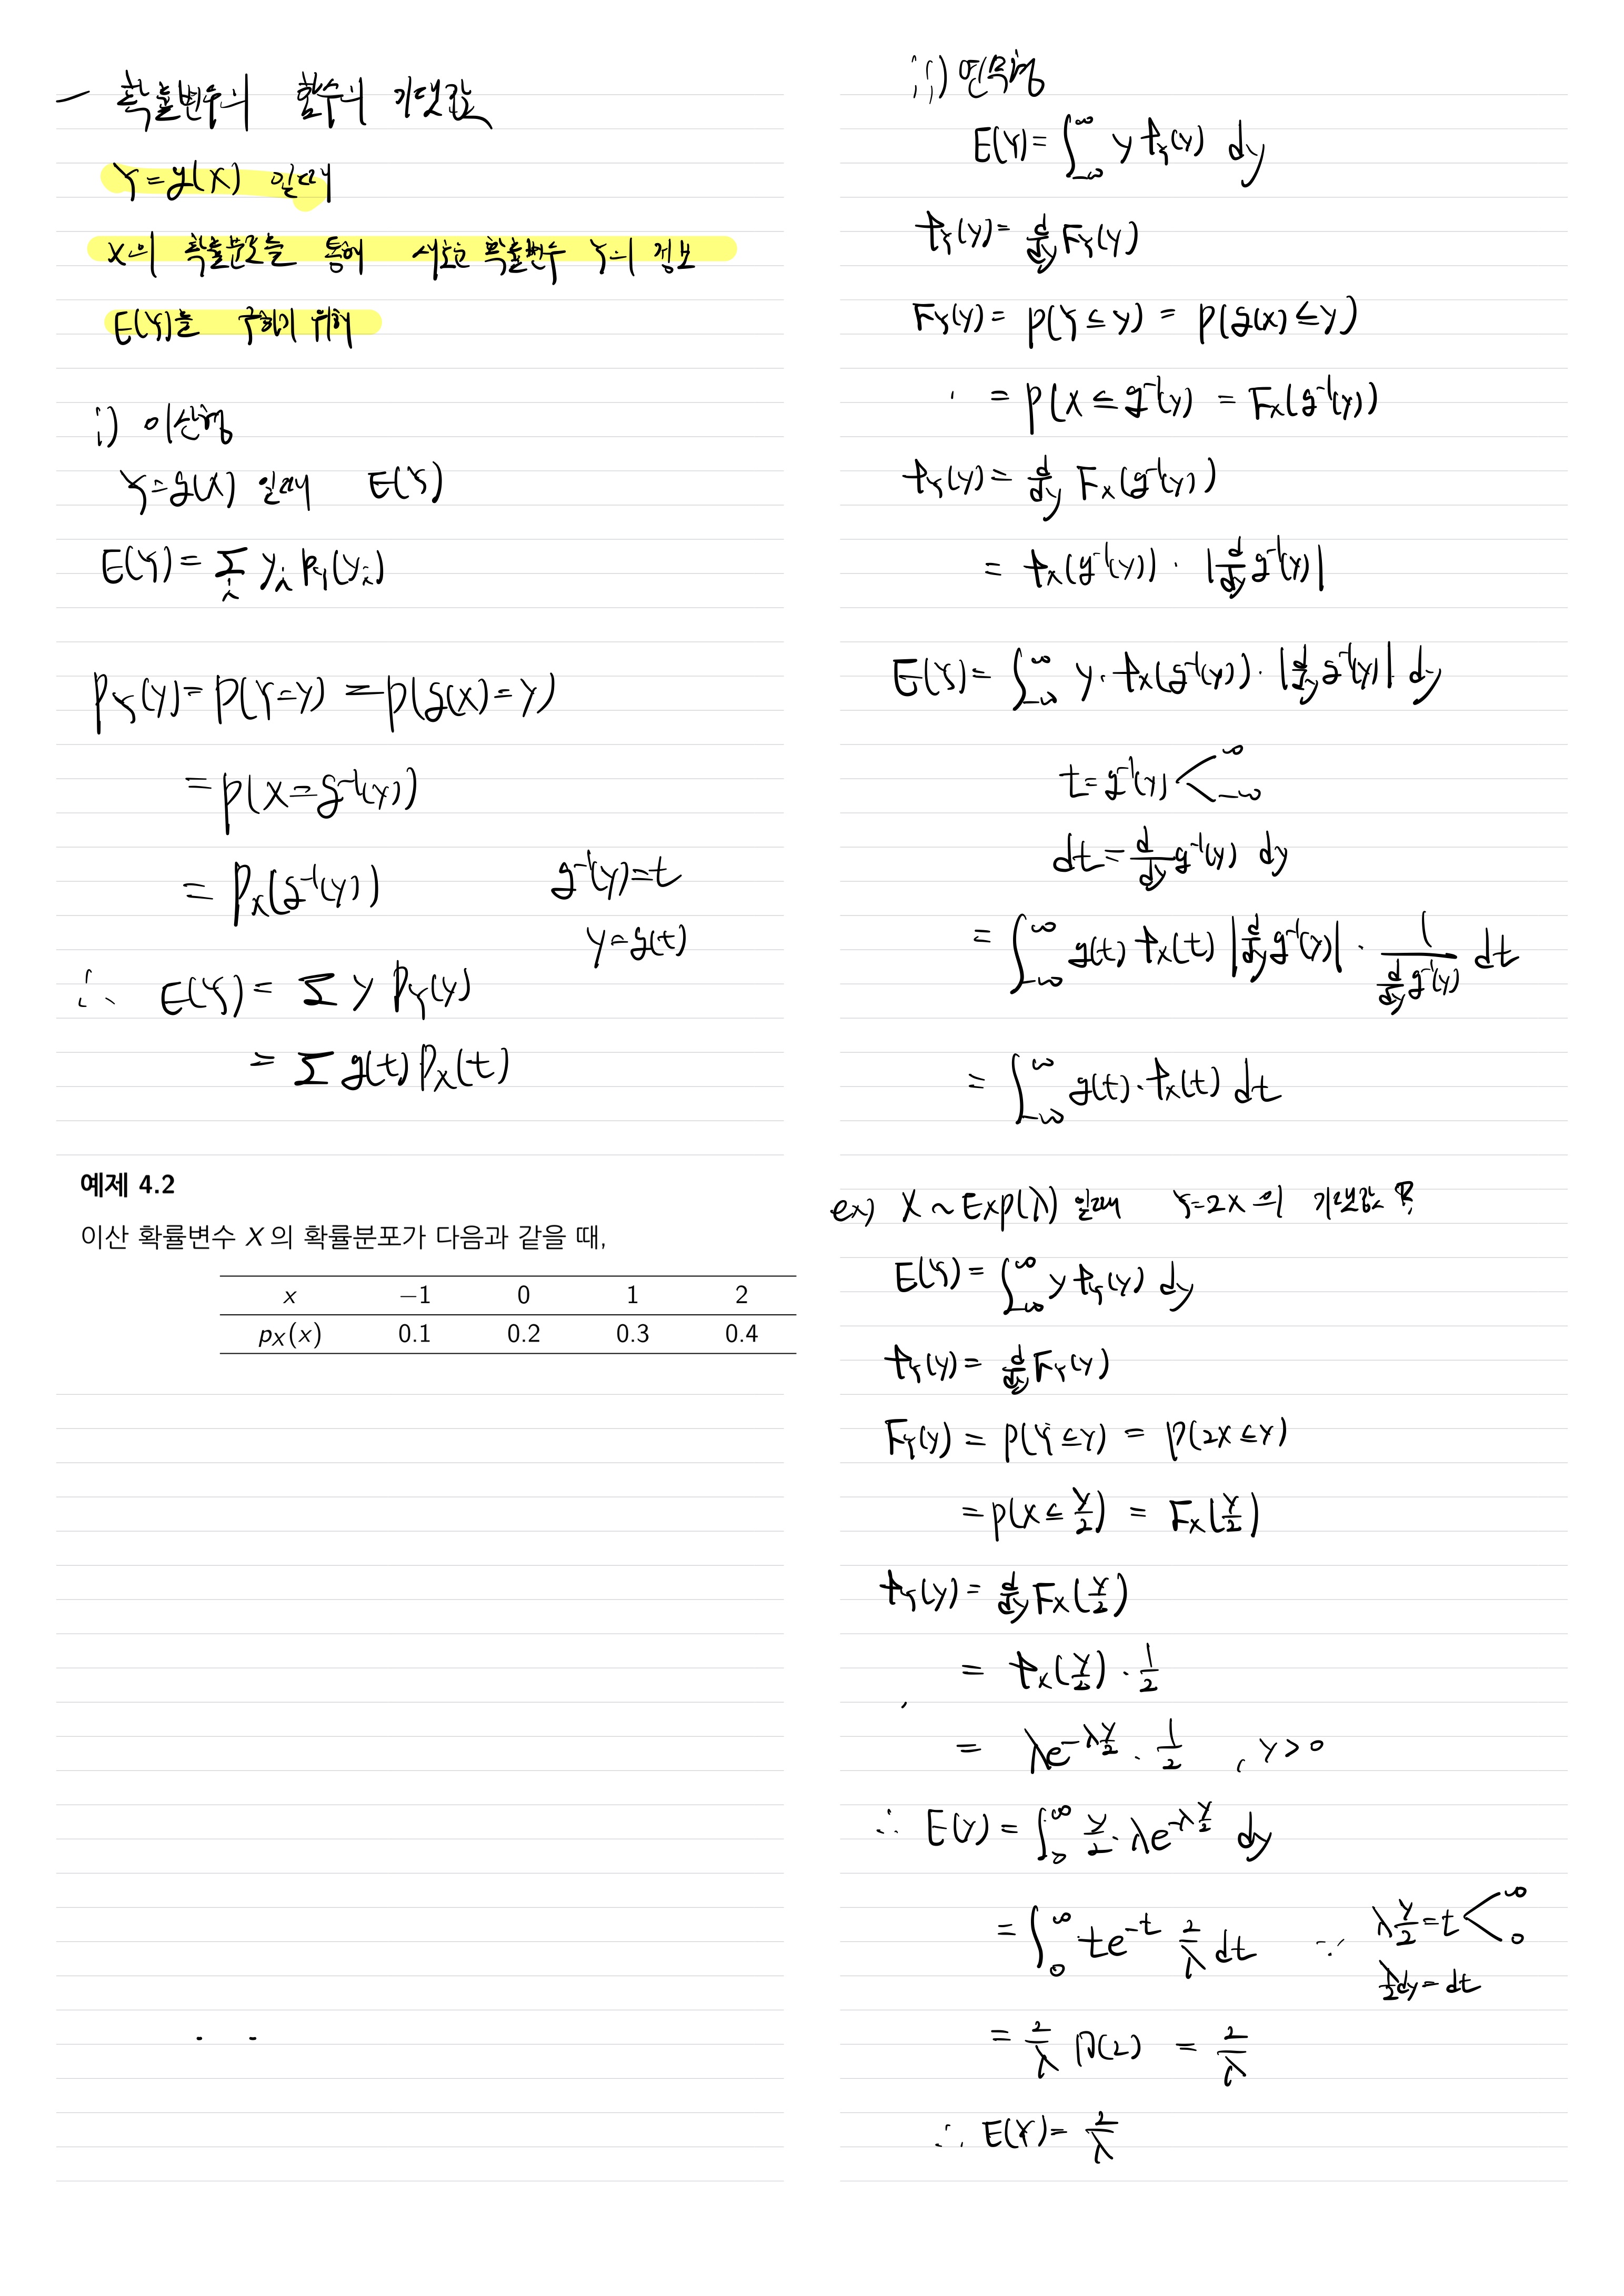 - 확률변수의 함수의 기댓값
Y=g(X) 일때
X의 확률분포를 통해 새로운 확률변수 Y의 정보
E(Y)를 구하기 위해
i) 이산형
Y=g(X) 일때 E(Y)
E(Y) = Σ_i y_i p_Y(y_i)
P_Y(y) = P(Y=y) = P(g(X)=y)
= P(X=g⁻¹(y))
= P_X(g⁻¹(y)) g⁻¹(y)=t
y=g(t)
∴ E(Y) = Σ y P_Y(y)
= Σ g(t) P_X(t)
예제 4.2
이산 확률변수 X 의 확률분포가 다음과 같을 때,
x −1 0 1 2
p_X(x) 0.1 0.2 0.3 0.4
ii) 연속형
E(Y) = ∫_{-∞}^{∞} y f_Y(y) dy
f_Y(y) = d/dy F_Y(y)
F_Y(y) = P(Y ≤ y) = P(g(X) ≤ y)
= P(X ≤ g⁻¹(y) = F_X(g⁻¹(y))
f_Y(y) = d/dy F_X(g⁻¹(y))
= f_X(g⁻¹(y)) · |d/dy g⁻¹(y)|
E(Y) = ∫_{-∞}^{∞} y · f_X(g⁻¹(y)) · |d/dy g⁻¹(y)| dy
t = g⁻¹(y) < ∞ -∞
dt = d/dy g⁻¹(y) dy
= ∫_{-∞}^{∞} g(t) f_X(t) |d/dy g⁻¹(y)| · 1/(d/dy g⁻¹(y)) dt
= ∫_{-∞}^{∞} g(t) · f_X(t) dt
ex) X ~ Exp(λ) 일때 Y=2X 의 기댓값은?
E(Y) = ∫_{-∞}^{∞} y f_Y(y) dy
f_Y(y) = d/dy F_Y(y)
F_Y(y) = P(Y ≤ y) = P(2X ≤ y)
= P(X ≤ y/2) = F_X(y/2)
f_Y(y) = d/dy F_X(y/2)
= f_X(y/2) · 1/2
= λe^{-λ y/2} · 1/2 , y > 0
∴ E(Y) = ∫_0^∞ y/2 · λe^{-λ y/2} dy
= ∫_0^∞ te^{-t} 2/λ dt ∵ λ y/2 = t < ∞ 0
λ/2 dy = dt
= 2/λ Γ(2) = 2/λ
∴ E(Y) = 2/λ